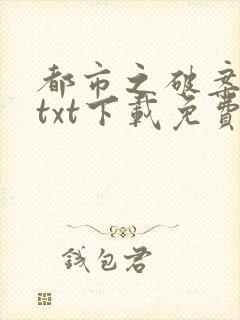 都市之破案
txt下載免費
錢包君